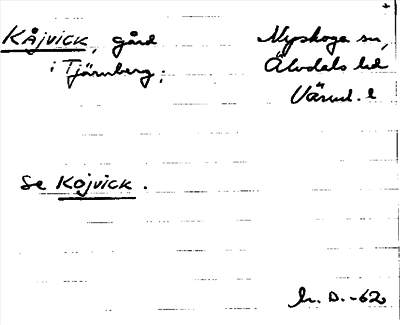 KÅJVICK, gård
i Tjärnberg;
Nyskoga sn,
Älvdals hd
Värml. l
Se KOJVICK.
D. -62